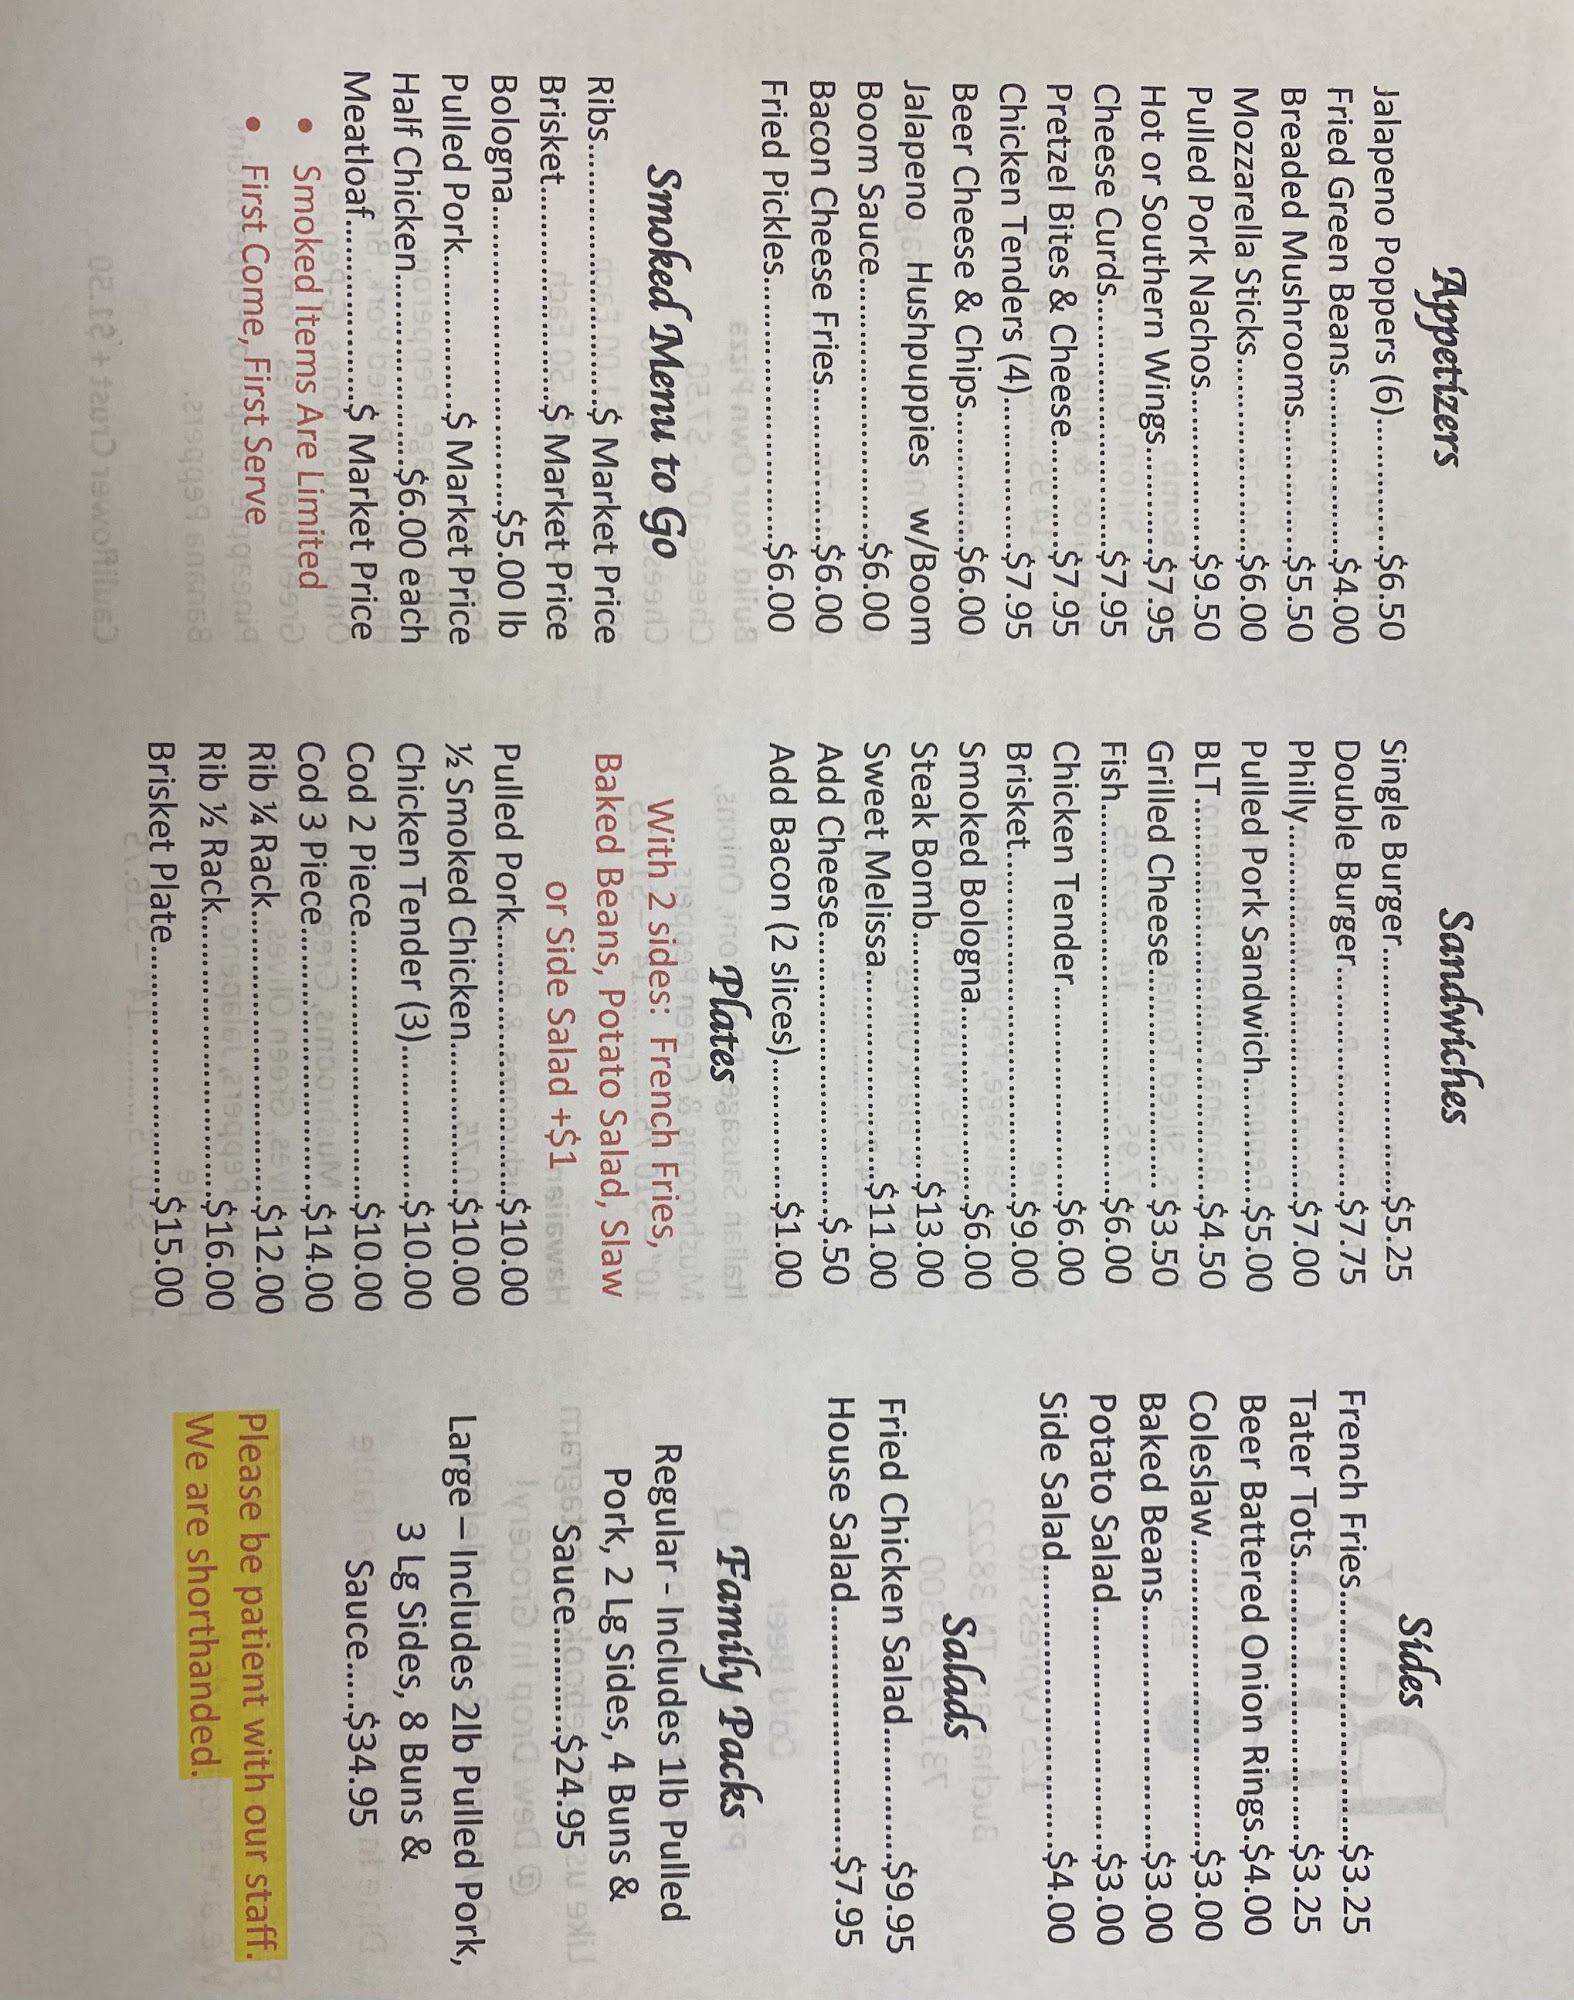 Appetizers
Jalapeno Poppers (6)............$6.50
Fried Green Beans................$4.00
Breaded Mushrooms............$5.50
Mozzarella Sticks..................$6.00
Pulled Pork Nachos..............$9.50
Hot or Southern Wings.........$7.95
Cheese Curds.......................$7.95
Pretzel Bites & Cheese..........$7.95
Chicken Tenders (4)..............$7.95
Beer Cheese & Chips............$6.00
Jalapeno Hushpuppies w/Boom
Boom Sauce........................$6.00
Bacon Cheese Fries..............$6.00
Fried Pickles........................$6.00
Smoked Menu to Go
Ribs........................$ Market Price
Brisket....................$ Market Price
Bologna...........................$5.00 lb
Pulled Pork..............$ Market Price
Half Chicken.................$6.00 each
Meatloaf.................$ Market Price
• Smoked Items Are Limited
• First Come, First Serve
Sandwiches
Single Burger.......................$5.25
Double Burger.....................$7.75
Philly...................................$7.00
Pulled Pork Sandwich...........$5.00
BLT.....................................$4.50
Grilled Cheese.................... $3.50
Fish....................................$6.00
Chicken Tender...................$6.00
Brisket................................$9.00
Smoked Bologna.................$6.00
Steak Bomb.......................$13.00
Sweet Melissa...................$11.00
Add Cheese..........................$.50
Add Bacon (2 slices).............$1.00
Plates
With 2 sides: French Fries,
Baked Beans, Potato Salad, Slaw
or Side Salad +$1
Pulled Pork.........................$10.00
½ Smoked Chicken..............$10.00
Chicken Tender (3)..............$10.00
Cod 2 Piece.........................$10.00
Cod 3 Piece.........................$14.00
Rib ¼ Rack..........................$12.00
Rib ½ Rack..........................$16.00
Brisket Plate.......................$15.00
Sides
French Fries........................$3.25
Tater Tots...........................$3.25
Beer Battered Onion Rings.$4.00
Coleslaw.............................$3.00
Baked Beans.......................$3.00
Potato Salad.......................$3.00
Side Salad...........................$4.00
Salads
Fried Chicken Salad.............$9.95
House Salad........................$7.95
Family Packs
Regular - Includes 1lb Pulled
Pork, 2 Lg Sides, 4 Buns &
Sauce..........$24.95
Large – Includes 2lb Pulled Pork,
3 Lg Sides, 8 Buns &
Sauce.....$34.95
Please be patient with our staff.
We are shorthanded.